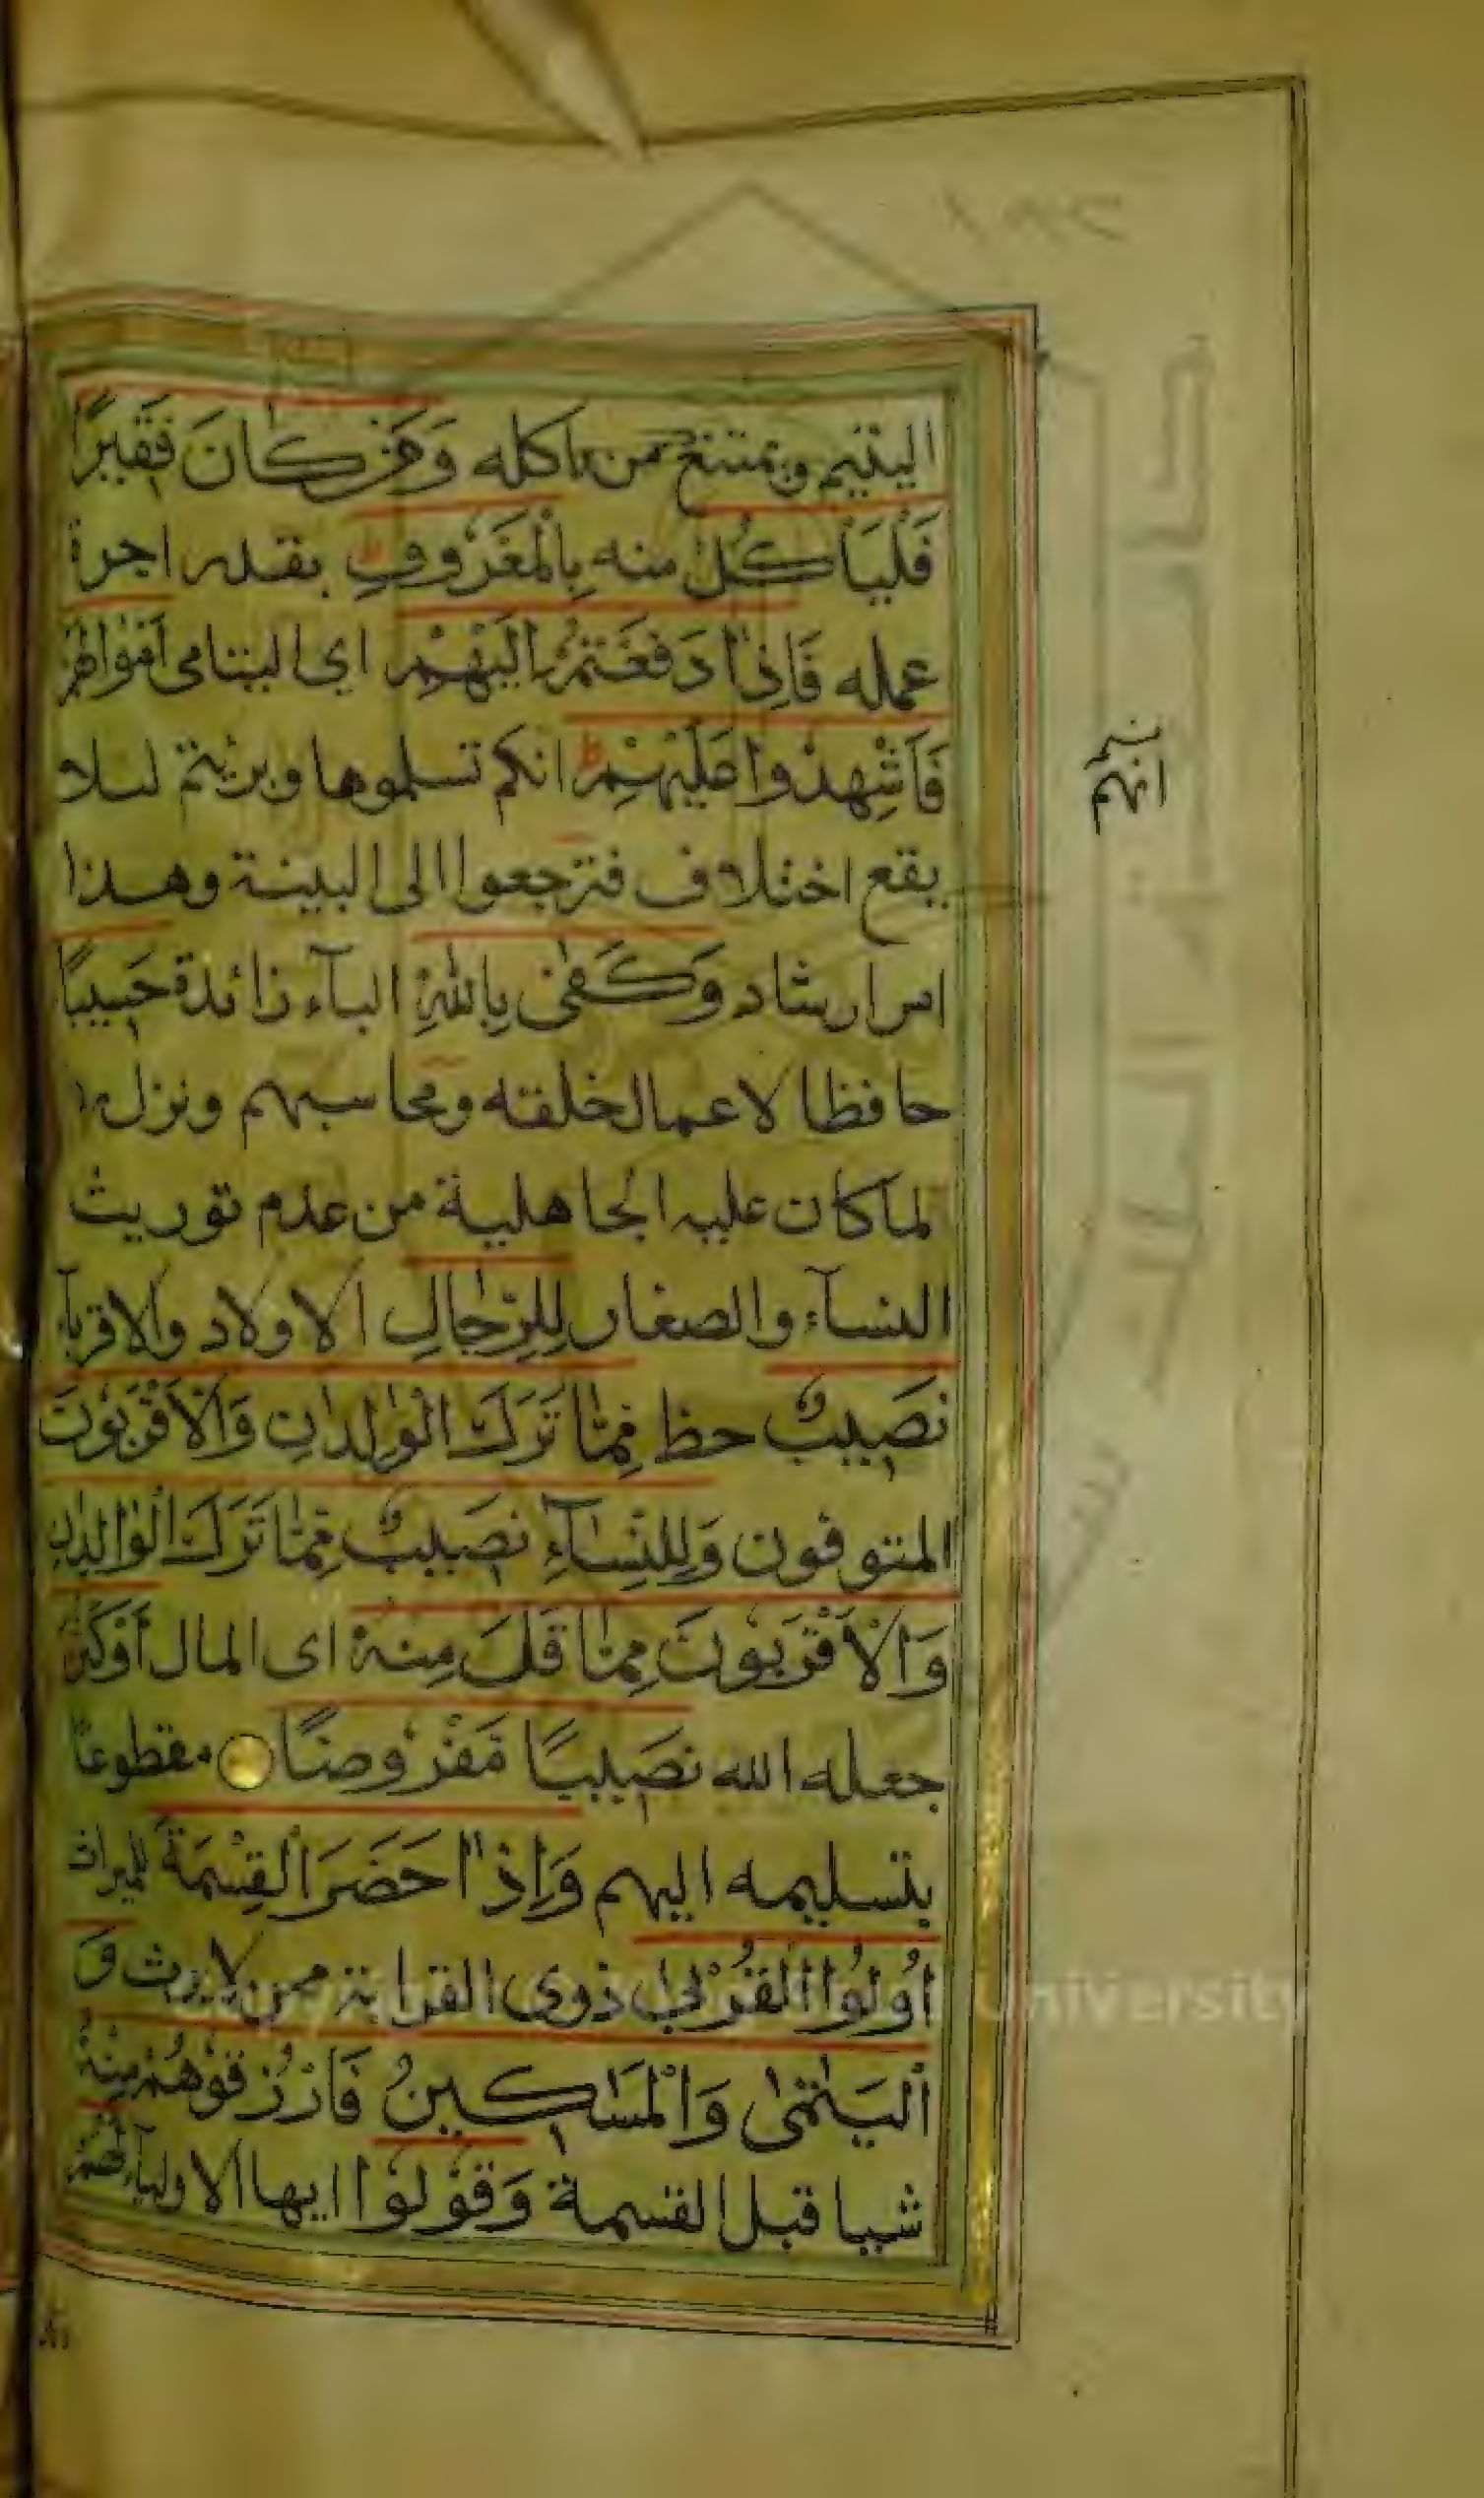 اليتيم ويمتنع من اكله وَمَنْ كَانَ فَقِيْرًا
فَلْيَأْكُلْ منه بِالْمَعْرُوْفِ ط بقدر اجرة
عمله فَاِذَا دَفَعْتُمْ اِلَيْهِمْ اى اليتامى اَمْوَالَهُمْ
فَاَشْهِدُوْا عَلَيْهِمْ ط انكم تسلموها وبريتم لئلا
يقع اختلاف فترجعوا الى البينة وهذا
امر ارشاد وَكَفٰى بِاللهِ البآء زائدة حَسِيْبًا
حافظا لاعمال خلقه ومحاسبهم ونزل ردا
لما كان عليه الجاهلية من عدم توريث
النسآء والصغار لِلرِّجَالِ الاولاد والاقربآء
نَصِيْبٌ حظ مِّمَّا تَرَكَ الْوَالِدٰنِ وَالْاَقْرَبُوْنَ
المتوفون وَلِلنِّسَآءِ نَصِيْبٌ مِّمَّا تَرَكَ الْوَالِدٰنِ
وَالْاَقْرَبُوْنَ مِمَّا قَلَّ مِنْهُ اى المال اَوْ كَثُرَ
جعله الله نَصِيْبًا مَّفْرُوْضًا مقطوعا
بتسليمه اليهم وَاِذَا حَضَرَ الْقِسْمَةَ للميراث
اُولُوا الْقُرْبٰى ذوى القرابة ممن لا يرث وَ
الْيَتٰمٰى وَالْمَسَاكِيْنُ فَارْزُقُوْهُمْ مِنْهُ
شيا قبل القسمة وَقُوْلُوْا ايها الاوليآء لَهُمْ
انهم
University